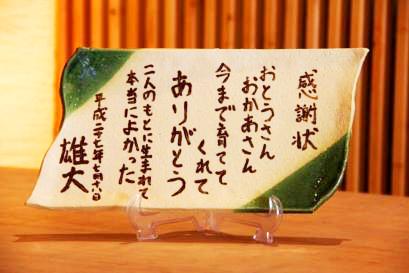 感謝状
おとうさん
おかあさん
今まで育てて
くれて
ありがとう
二人のもとに生まれて
本当によかった
平成二十七年七月十八日
雄大